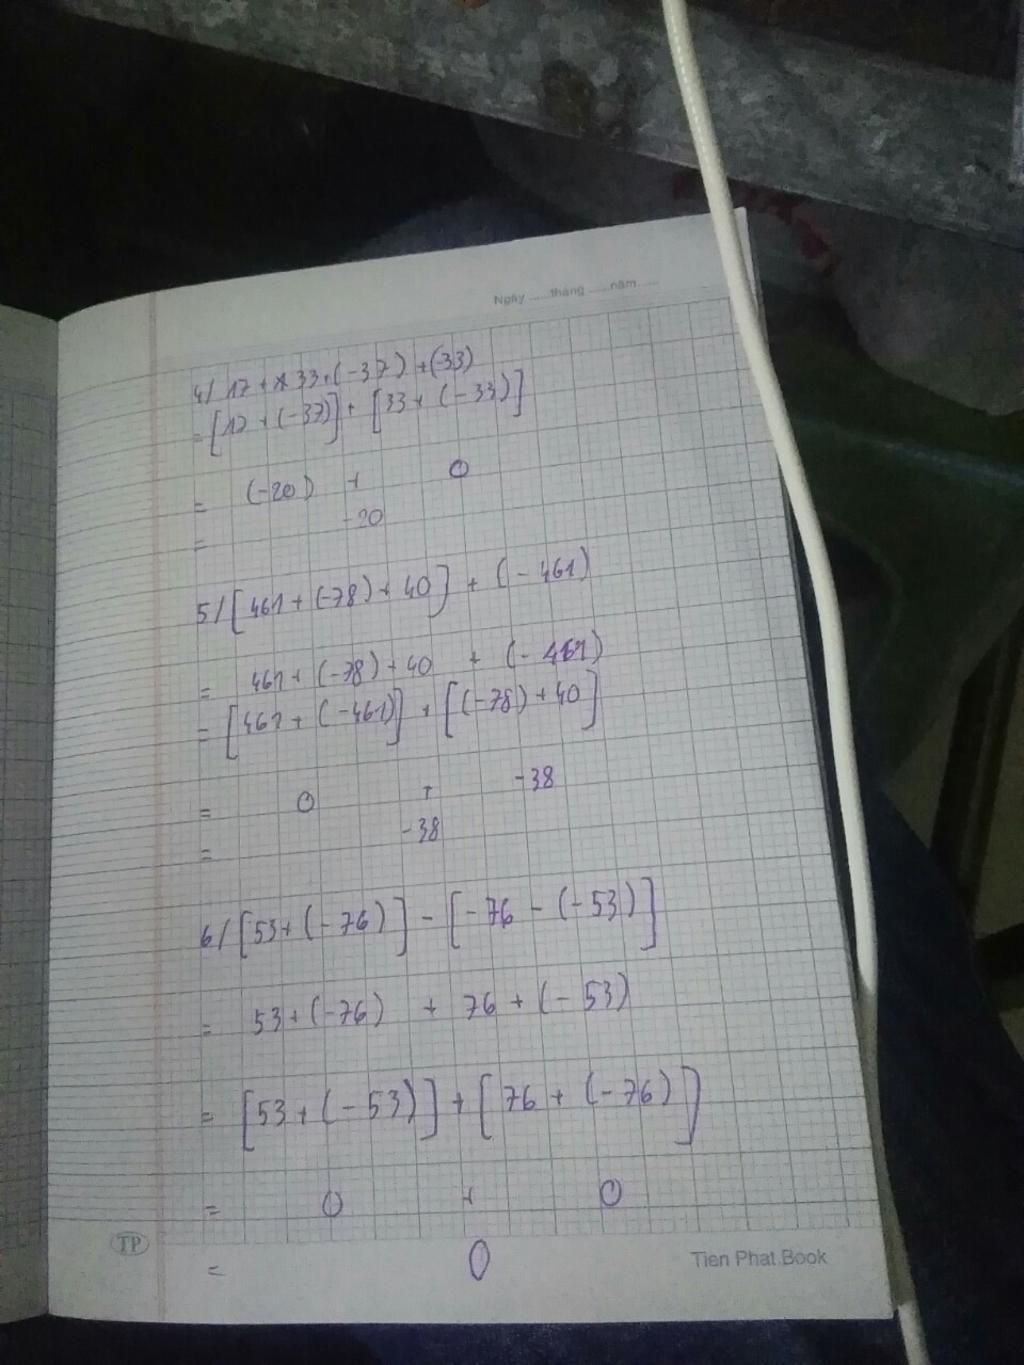 Ngày ......tháng ......năm......
4/ 17 + 33 + (-37) + (-33)
= [17 + (-37)] + [33 + (-33)]
= (-20) + 0
= -20
5/ [461 + (-78) + 40] + (-461)
= 461 + (-78) + 40 + (-461)
= [461 + (-461)] + [(-78) + 40]
= 0 + -38
= -38
6/ [53 + (-76)] - [-76 - (-53)]
= 53 + (-76) + 76 + (-53)
= [53 + (-53)] + [76 + (-76)]
= 0 + 0
= 0
TP
Tien Phat Book